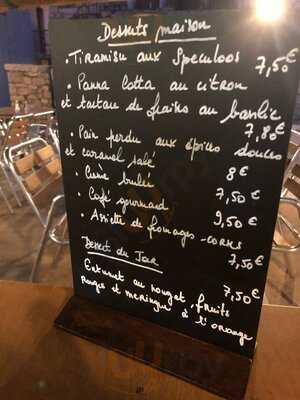 Desserts maison
• Tiramisu aux Speculoos 7,50€
• Panna Cotta au citron
et tartare de fraises au basilic
7,80€
• Pain perdu aux épices douces
et caramel salé 8€
• Creme brulée 7,50€
• Café gourmand 9,50€
• Assiette de fromages - corses
7,50€
Dessert du Jour
7,50€
Entremet au nougat, fruits
rouges et meringue à l'orange